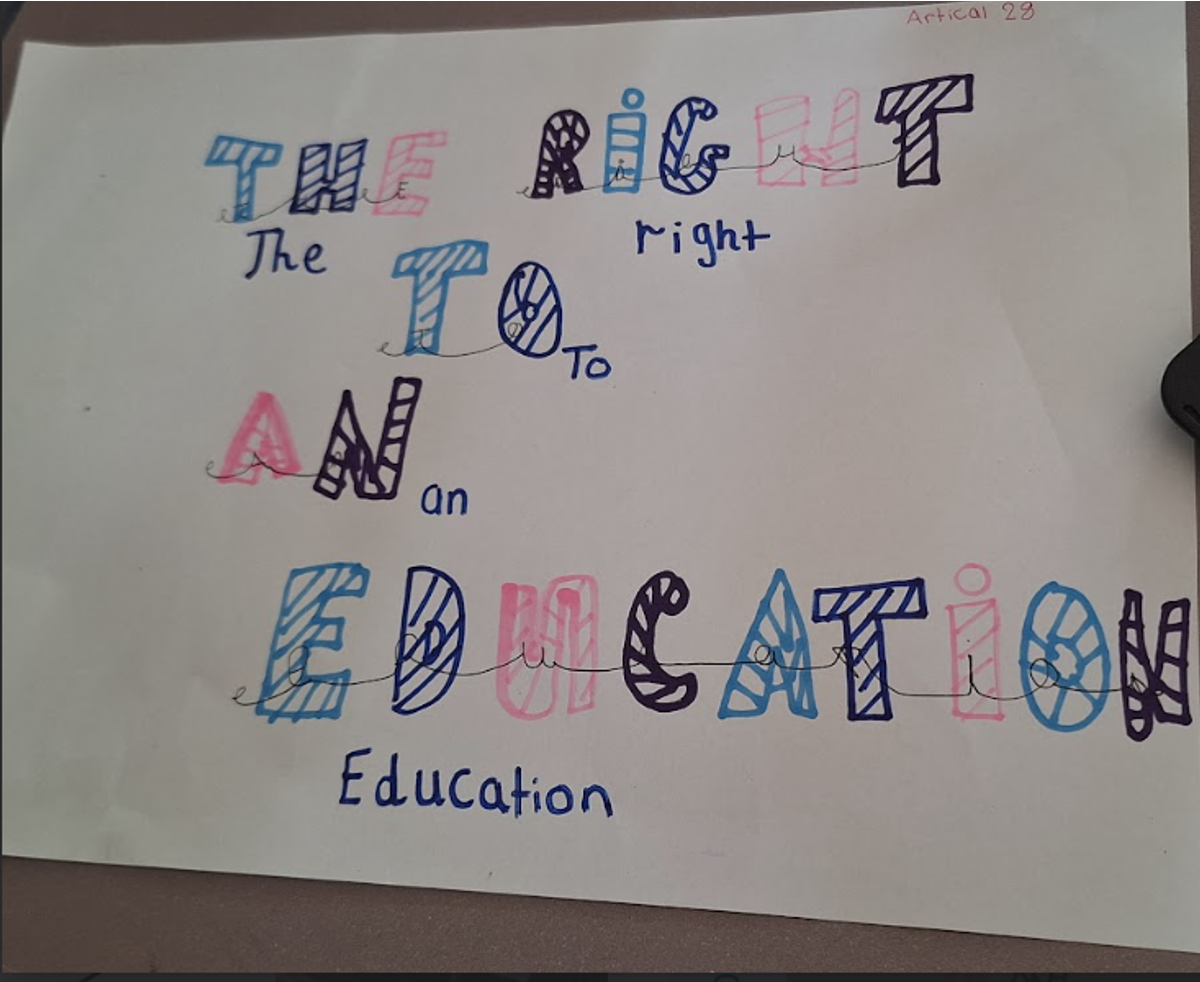 Artical 28
THE RiGHT
The right
TO
To
AN
an
EDUCATiON
Education